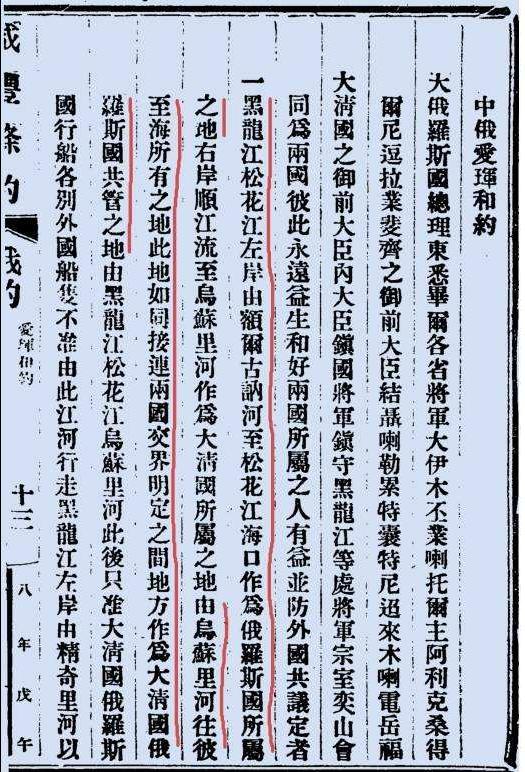 中俄愛琿和約
大俄羅斯國總理東悉畢爾各省將軍大伊木丕業喇托爾主阿利克桑得
爾尼逗拉業斐齊之御前大臣結聶喇勒累特囊特尼迢來木喇電岳福
大清國之御前大臣內大臣鎮國將軍鎮守黑龍江等處將軍宗室奕山會
同爲兩國彼此永遠益生和好兩國所屬之人有益並防外國共議定者
一黑龍江松花江左岸由額爾古訥河至松花江海口作爲俄羅斯國所屬
之地右岸順江流至烏蘇里河作爲大清國所屬之地由烏蘇里河往彼
至海所有之地此地如同接連兩國交界明定之間地方作爲大清國俄
羅斯國共管之地由黑龍江松花江烏蘇里河此後只准大清國俄羅斯
國行船各別外國船隻不准由此江河行走黑龍江左岸由精奇里河以
咸豐條約 俄約 愛琿和約 十三 八年戊午